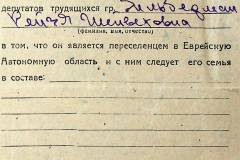 депутатов трудящихся гр. Зильберман
(фамилия, имя, отчество)
в том, что он является переселенцем в Еврейскую
Автономную область и с ним следует его семья
в составе: